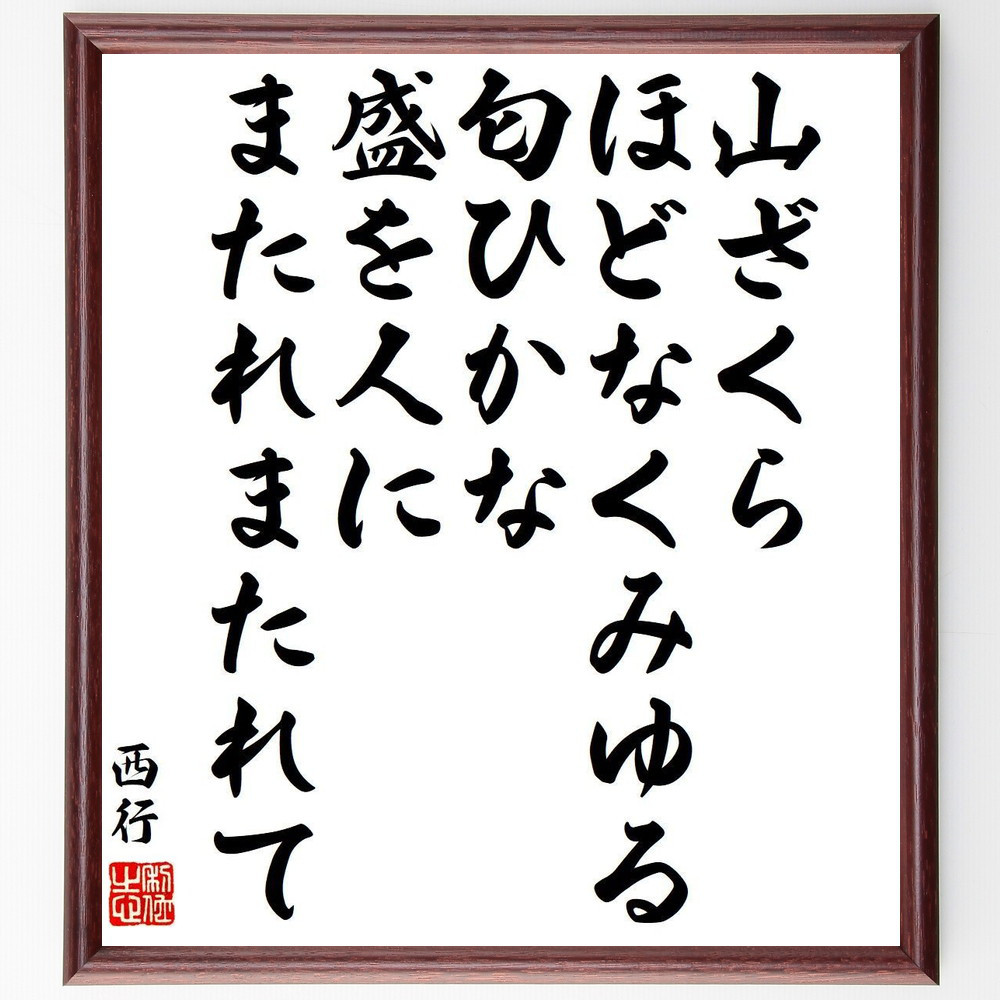 山ざくら
ほどなくみゆる
匂ひかな
盛を人に
またれまたれて
西行